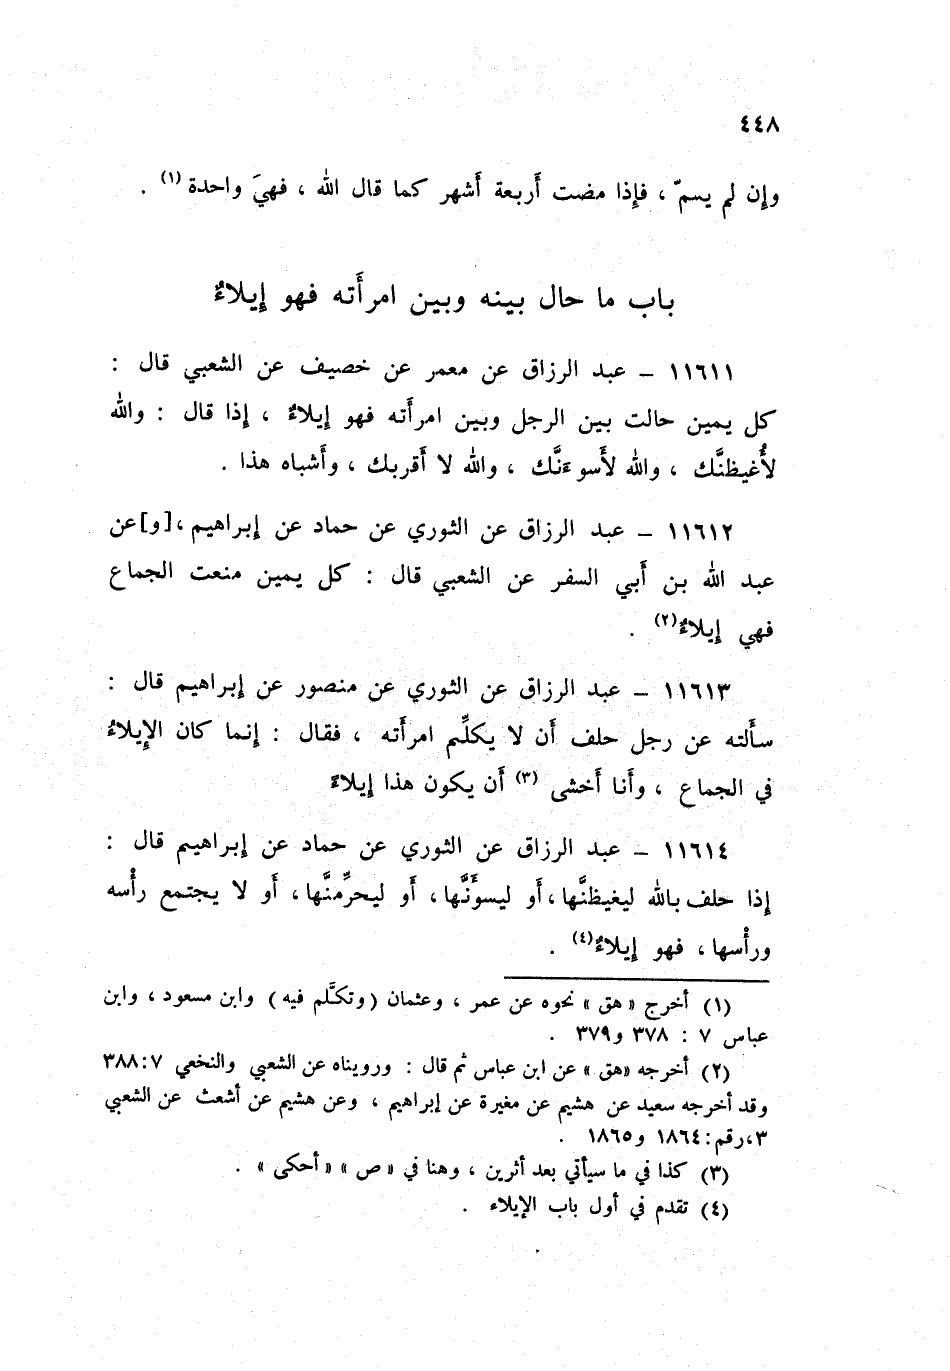 ٤٤٨
وإِن لم يسمّ ، فإِذا مضت أَربعة أَشهر كما قال الله ، فهيَ واحدة (١) .
باب ما حال بينه وبين امرأَته فهو إِيلاءٌ
١١٦١١ – عبد الرزاق عن معمر عن خصيف عن الشعبي قال :
كل يمين حالت بين الرجل وبين امرأَته فهو إِيلاءٌ ، إِذا قال : والله
لأُغيظنَّك ، والله لأَسوءَنَّك ، والله لا أَقربك ، وأَشباه هذا .
١١٦١٢ – عبد الرزاق عن الثوري عن حماد عن إِبراهيم ،[و]عن
عبد الله بن أَبي السفر عن الشعبي قال : كل يمين منعت الجماع
فهي إِيلاءٌ(٢) .
١١٦١٣ – عبد الرزاق عن الثوري عن منصور عن إِبراهيم قال :
سأَلته عن رجل حلف أَن لا يكلِّم امرأَته ، فقال : إِنما كان الإِيلاءُ
في الجماع ، وأَنا أَخشى (٣) أَن يكون هذا إِيلاءً
١١٦١٤ – عبد الرزاق عن الثوري عن حماد عن إِبراهيم قال :
إِذا حلف بالله ليغيظنَّها ، أَو ليسوأَنَّها ، أَو ليحرِّمنَّها ، أَو لا يجتمع رأْسه
ورأْسها ، فهو إِيلاءٌ(٤) .
(١) أخرج « هق » نحوه عن عمر ، وعثمان ( وتكلَّم فيه ) وابن مسعود ، وابن
عباس ٧ : ٣٧٨ و٣٧٩ .
(٢) أخرجه «هق » عن ابن عباس ثم قال : ورويناه عن الشعبي والنخعي ٣٨٨:٧
وقد أخرجه سعيد عن هشيم عن مغيرة عن إبراهيم ، وعن هشيم عن أشعث عن الشعبي
٣،رقم:١٨٦٤ و١٨٦٥ .
(٣) كذا في ما سيأتي بعد أثرين ، وهنا في « ص » « أحكى » .
(٤) تقدم في أول باب الإيلاء .